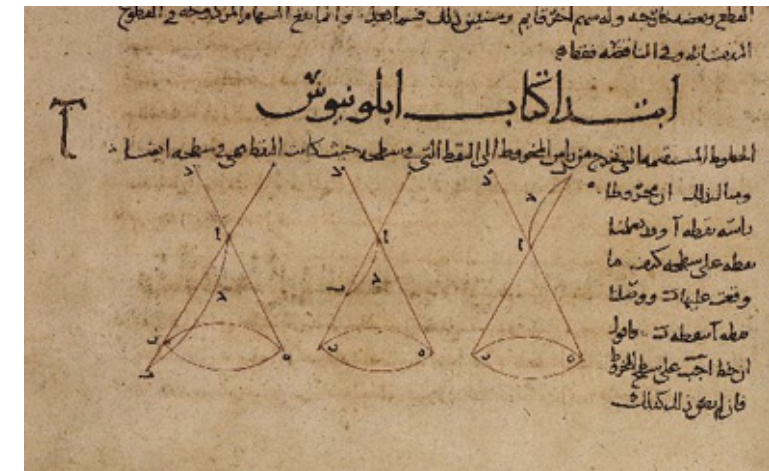 القطع وبعضه خارجه وله سهم اخر قايم وسنبين ذلك فيما بعد وانما تقع السهام المزدوجة في القطوع
المتقابلة وفي الناقصة فقط
ابتدا كتاب ابلونيوس
الخطوط المستقيمة التي تخرج من راس المخروط الى النقط التي في سطحه حيث كانت النقط هي في سطحه ايضا
مثال ذلك ان مخروطا
راسه نقطة ا وقد تعلمنا
نقطة على سطحه كيف ما
وقعت عليها ب ووصلنا
نقطة ا بنقطة ب فاقول
ان خط اجب على سطح المخروط
فان لم يكن ذلك كذلك
ا
د
د
د
ا
ا
ا
ح
ح
ح
ب
ب
ه
ه
ه